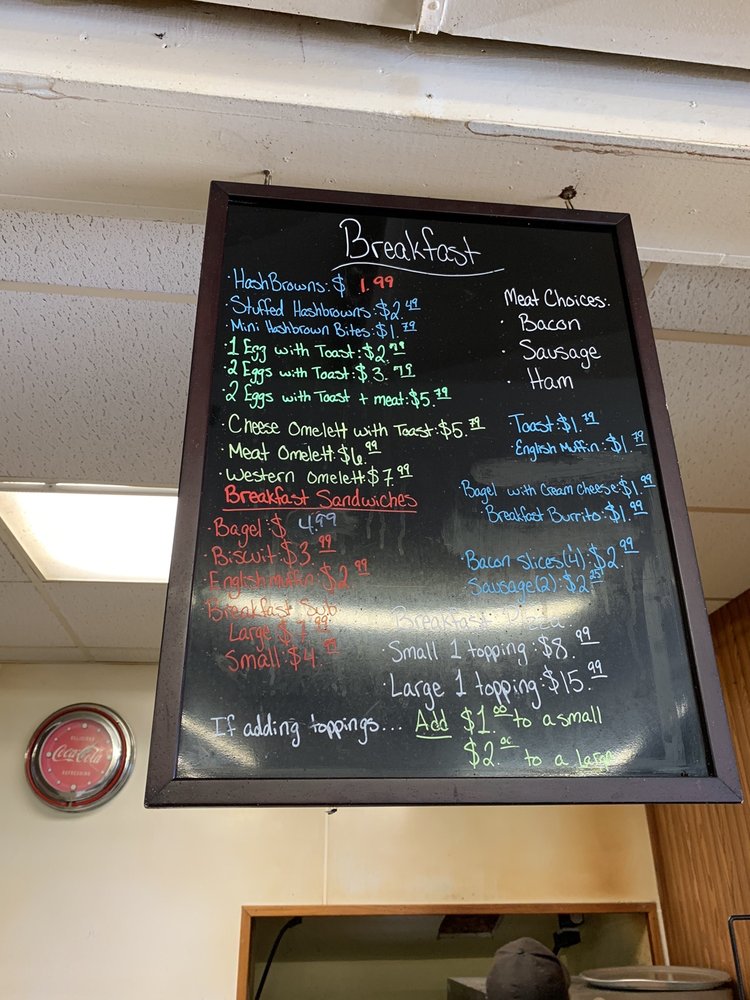 Breakfast
·HashBrowns:$ 1.99
·Stuffed Hashbrowns:$2.49
·Mini Hashbrown Bites:$1.79
·1 Egg with Toast:$2.79
·2 Eggs with Toast:$3.79
·2 Eggs with Toast + meat:$5.79
·Cheese Omelett with Toast:$5.79
·Meat Omelett $6.99
·Western Omelett $7.99
Breakfast Sandwiches
·Bagel:$ 4.99
·Biscuit:$3.99
·English muffin:$2.99
Breakfast Sub:
Large $7.99
Small:$4.99
Meat Choices:
· Bacon
· Sausage
· Ham
·Toast:$1.79
·English Muffin:$1.79
Bagel with Cream Cheese:$1.99
·Breakfast Burrito:$1.99
·Bacon slices(4):$2.99
Sausage(2):$2.25
Breakfast Pizza:
·Small 1 topping:$8.99
·Large 1 topping:$15.99
If adding toppings... Add $1.00 to a small
$2.00 to a large
DELICIOUS
Coca-Cola
REFRESHING